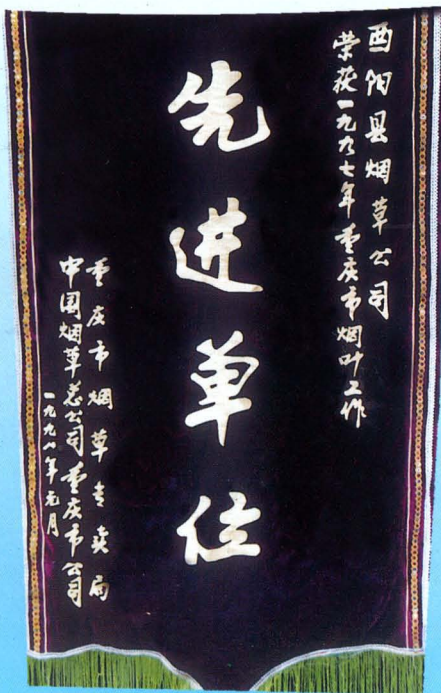 酉阳县烟草公司
荣获一九九七年重庆市烟叶工作
先进单位
重庆市烟草专卖局
中国烟草总公司重庆市公司
一九九八年元月